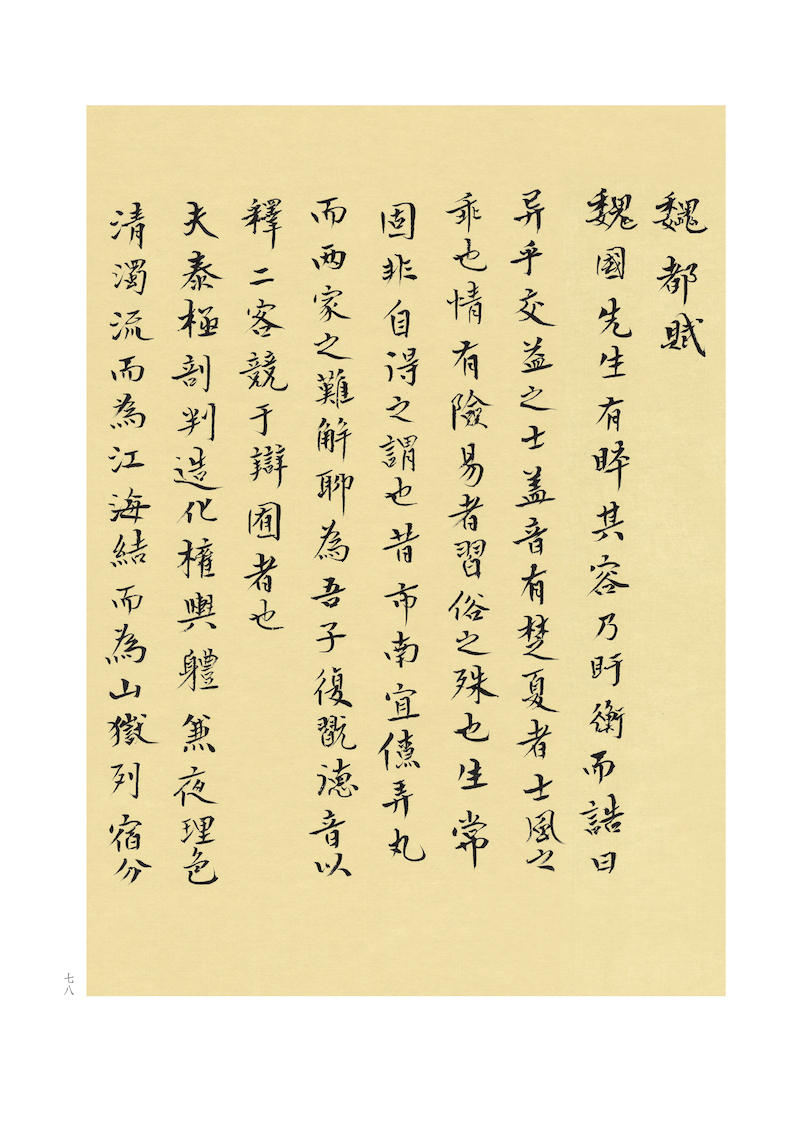 魏都賦
魏國先生有睟其容乃盱衡而誥曰
异乎交益之士盖音有楚夏者士風之
乖也情有險易者習俗之殊也生常
固非自得之謂也昔市南宜僚弄丸
而两家之難解聊為吾子復翫德音以
釋二客競于辯囿者也
夫泰極剖判造化權輿體兼夜理色
清濁流而為江海結而為山嶽列宿分
七八